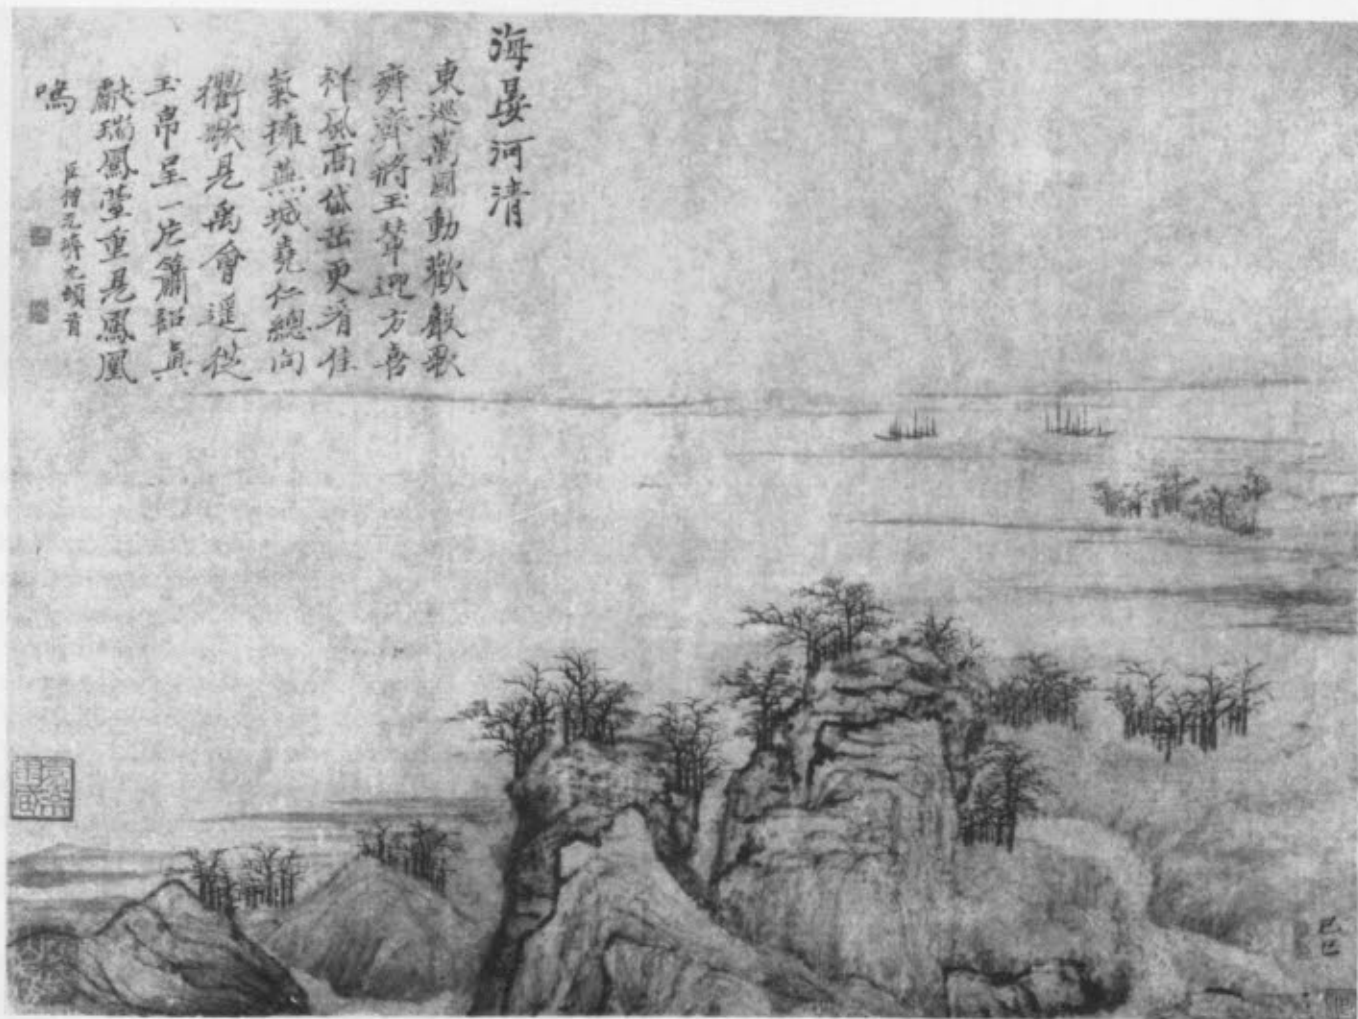 海晏河清
東巡萬國動歡聲歌
舞齊將玉輦迎方喜
祥風高岱岳更看佳
氣擁蕪城堯仁總向
衢歌見禹會遥從
玉帛呈一片簫韶真
獻瑞鳳臺重見鳳凰
鳴
臣僧元濟九頓首
己巳